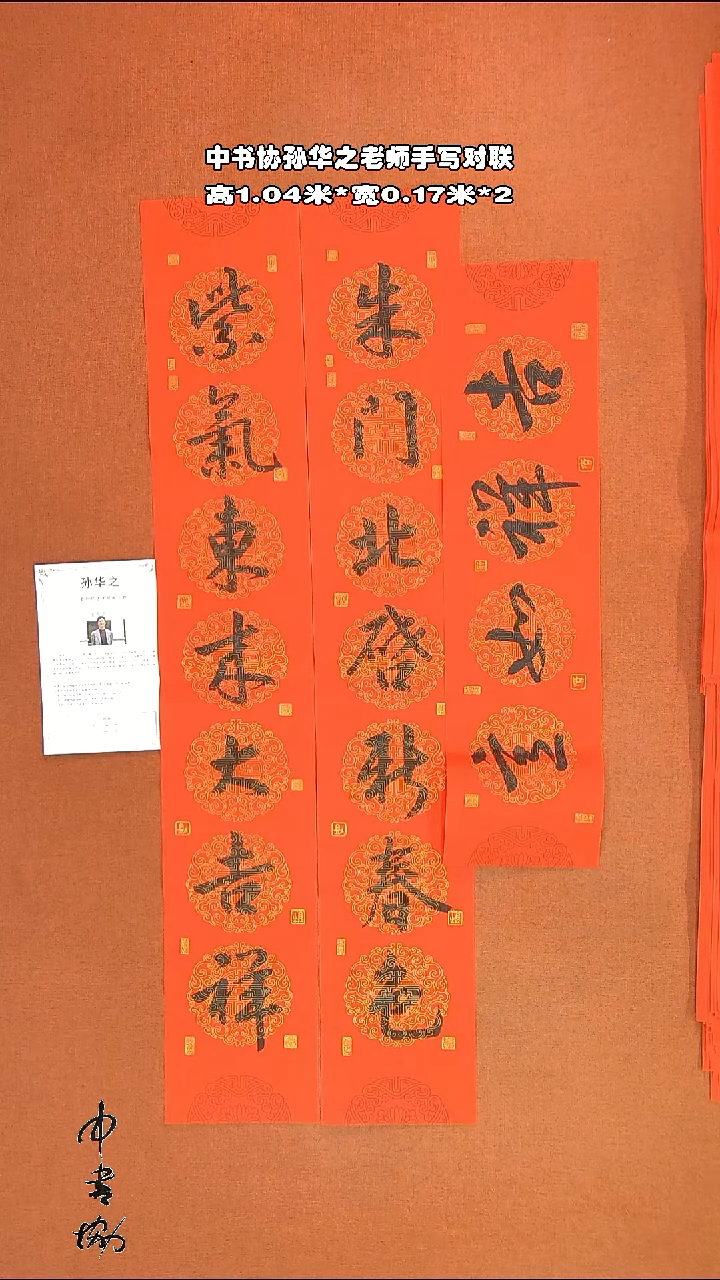 中书协孙华之老师手写对联
高1.04米*宽0.17米*2
吉祥如意
朱门北启新春色
紫氣東来大吉祥
孙华之
中書协